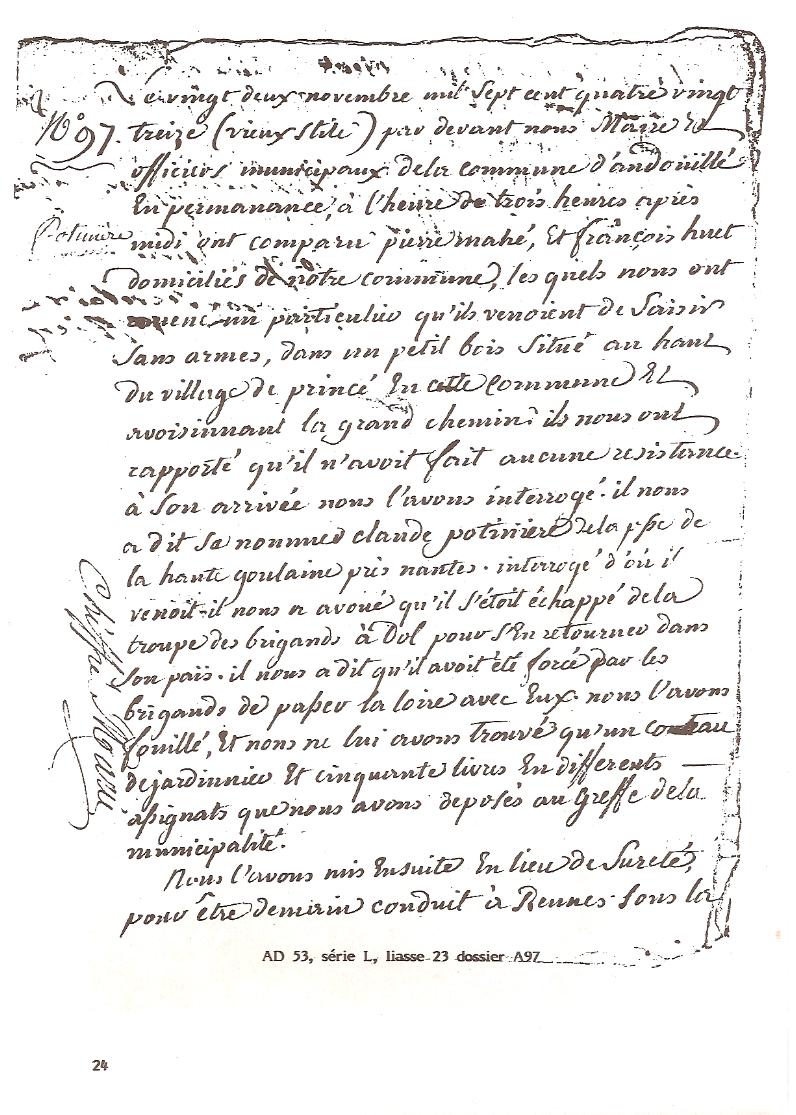 Le vingt deux novembre mil Sept cent quatre vingt
N° 97. treize (vieux Stile) par devant nous Maire Et
officiers municipaux dela commune d'andouillé
En permanance, à l'heure de trois heures après
Potiniere
midi ont comparu pierre mahé, Et françois huet
domiciliés de notre commune, les quels nous ont
amené un particulier qu'ils venoient de Saisir
Sans armes, dans un petit bois Situé au haut
du village de princé En cette Commune Et
avoisinnant la grand chemin ils nous ont
rapporté qu'il n'avoit fait aucune resistance.
à Son arrivée nous l'avons interrogé. il nous
a dit Se nommer claude potiniere dela psse de
la haute goulaine près nantes. interrogé d'où il
venoit il nous a avoué qu'il S'étoit échappé dela
troupe des brigands à Dol pour S'En retourner dans
Son païs. il nous a dit qu'il avoit été forcé par les
brigands de passer la loire avec Eux. nous l'avons
fouillé, Et nous ne lui avons trouvé qu'un couteau
de jardinnier Et cinquante livres En differents
assignats que nous avons deposés au Greffe dela
municipalité.
Nous l'avons mis Ensuite En lieu de Sureté,
pour être demain conduit à Rennes Sous la
AD 53, série L, liasse 23 dossier A97
24